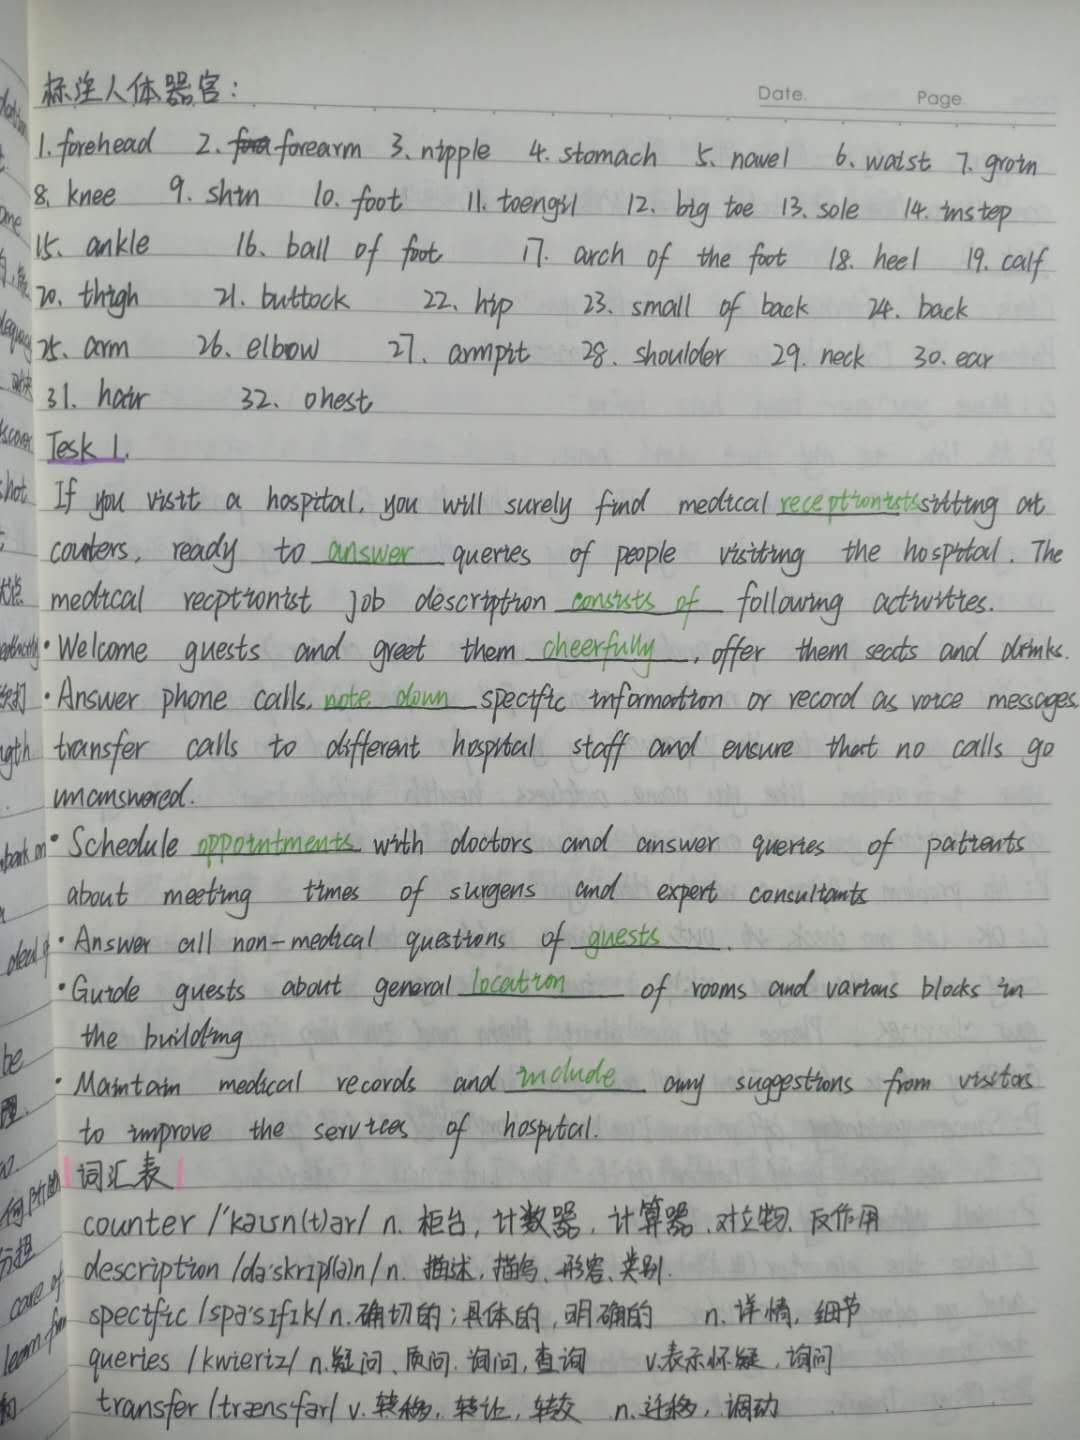 标注人体器官:
Date. Page.
1. forehead 2. forearm 3. nipple 4. stomach 5. navel 6. waist 7. groin
8. knee 9. shin 10. foot 11. toengil 12. big toe 13. sole 14. instep
15. ankle 16. ball of foot 17. arch of the foot 18. heel 19. calf
20. thigh 21. buttock 22. hip 23. small of back 24. back
25. arm 26. elbow 27. armpit 28. shoulder 29. neck 30. ear
31. hair 32. chest
Tesk 1.
If you visit a hospital, you will surely find medical receptionists sitting at
counters, ready to answer queries of people visiting the hospital. The
medical recptionist job description consists of following activities.
• Welcome guests and greet them cheerfully, offer them seats and drinks.
• Answer phone calls, note down specific information or record as voice messages,
transfer calls to different hospital staff and ensure that no calls go
unanswered.
• Schedule appointments with doctors and answer queries of patients
about meeting times of surgens and expert consultants
• Answer all non-medical questions of guests.
• Guide guests about general location of rooms and various blocks in
the building
• Maintain medical records and include any suggestions from visitors
to improve the services of hospital.
词汇表
counter /'kaʊn(t)ər/ n. 柜台, 计数器, 计算器, 对立物、反作用
description /də'skrɪpʃ(ə)n/ n. 描述, 描写、形容、类别.
specific /spə'sɪfɪk/ n. 确切的; 具体的, 明确的 n. 详情, 细节
queries /kwieriz/ n. 疑问、质问、询问, 查询 v. 表示怀疑, 询问
transfer /trænsfər/ v. 转移, 转让, 转交 n. 迁移, 调动